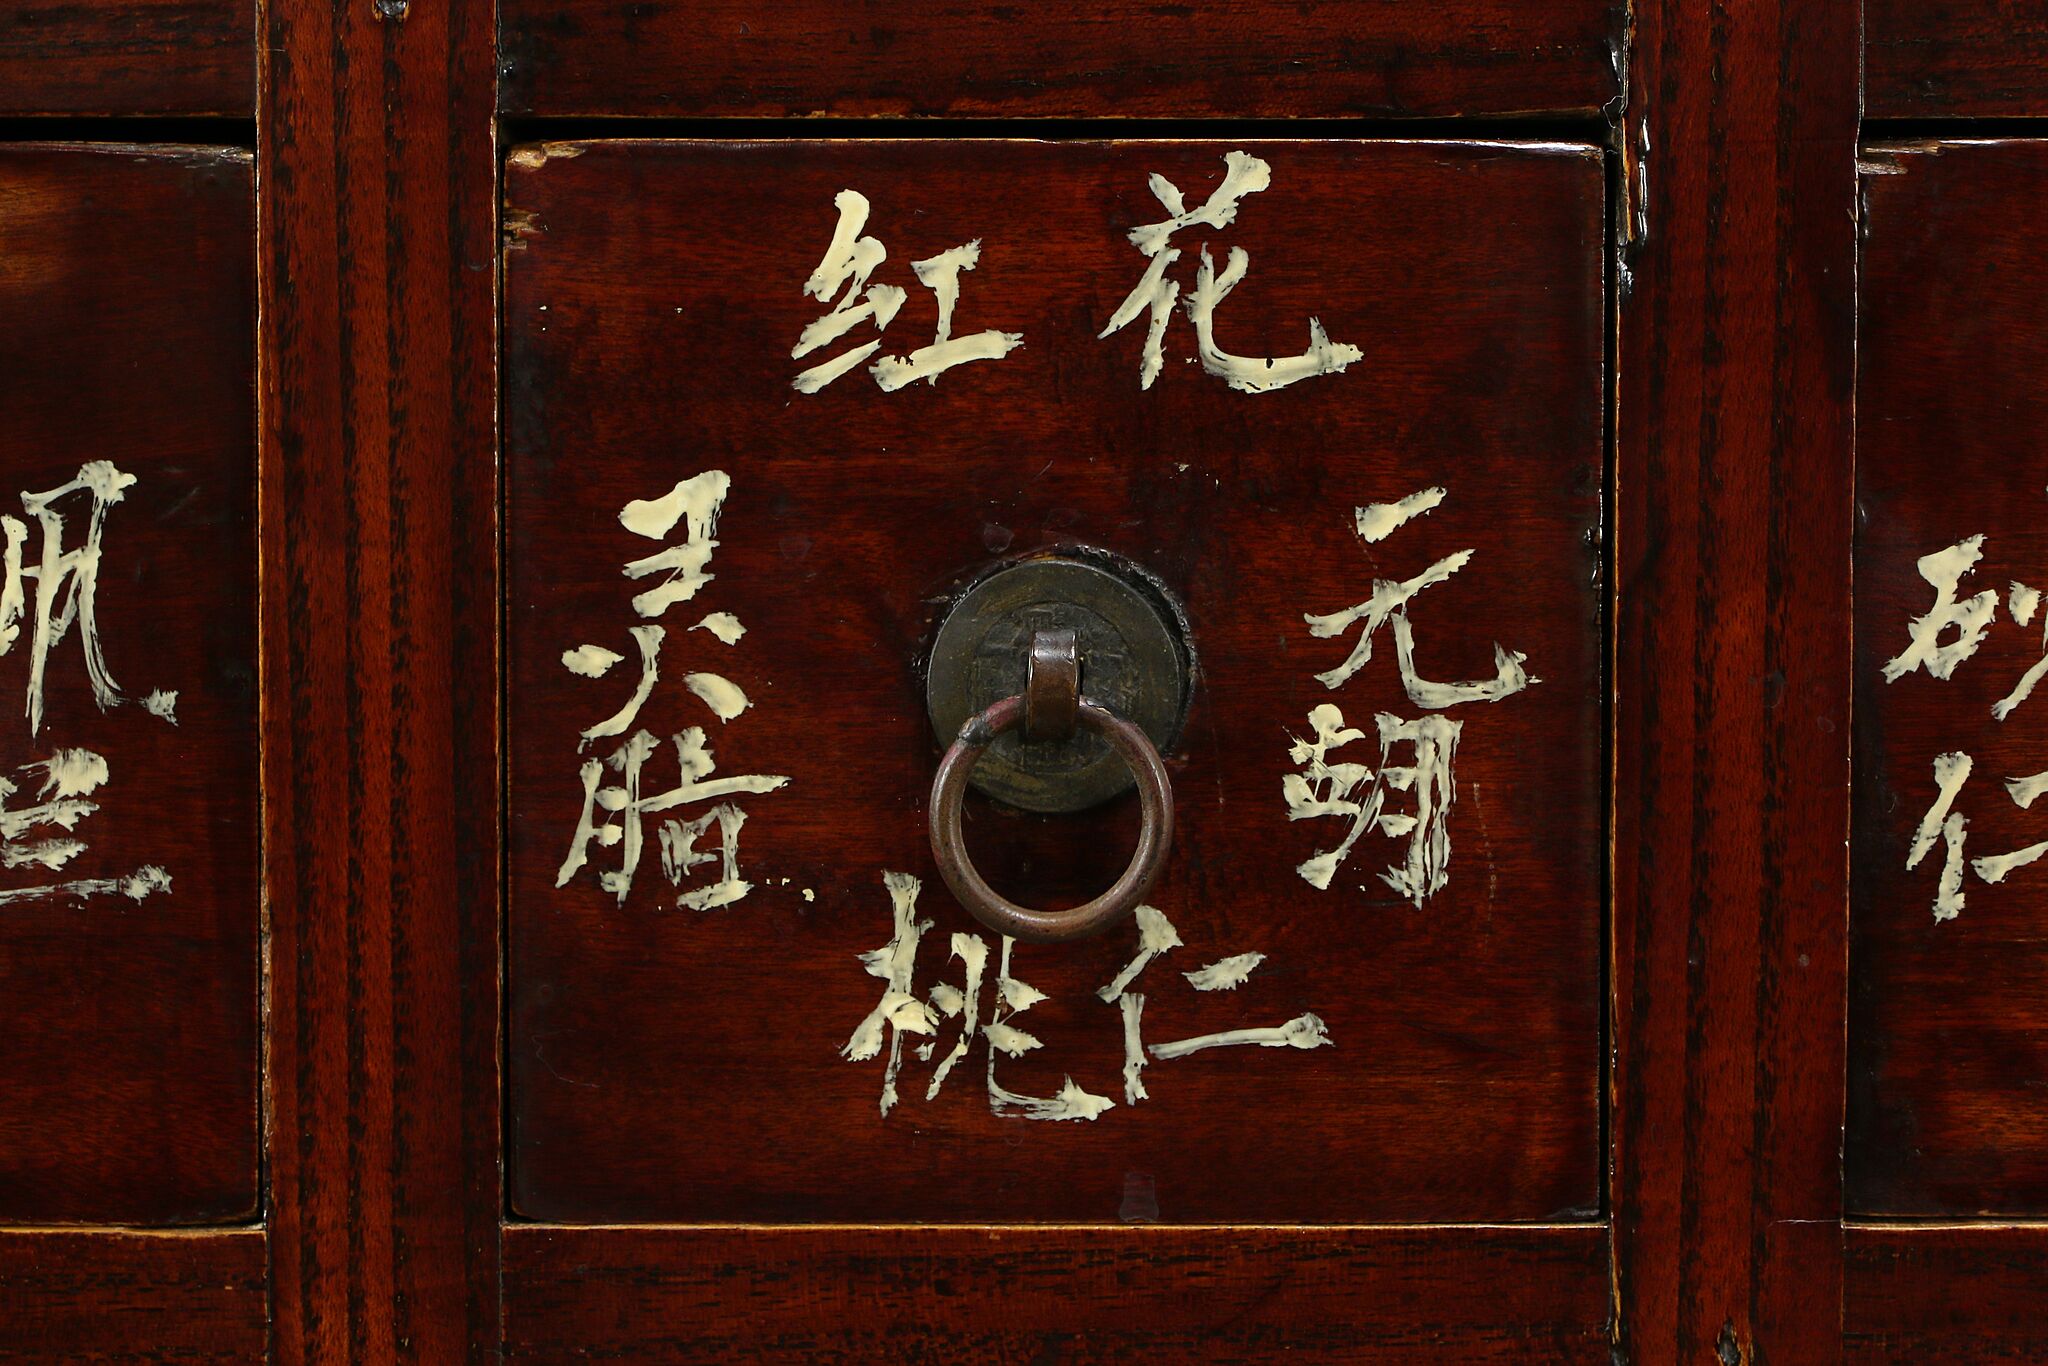 红花
灵脂
元胡
桃仁
砂仁